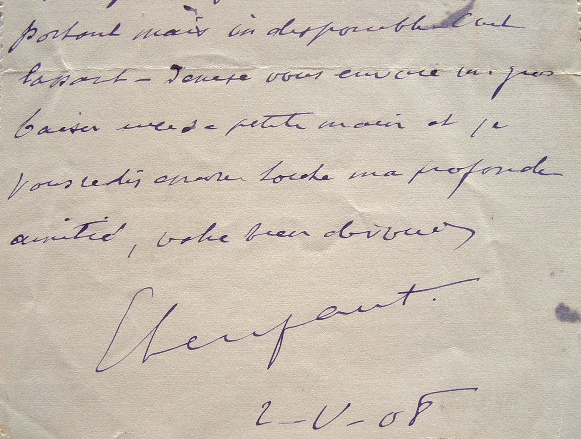 portant mais indisponible
Denise vous envoie un gros
baiser avec sa petite main et je
vous redis encore toute ma profonde
amitié, votre bien dévoué
2-V-08